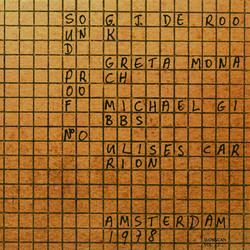 SO
UN
D
PR
OO
F
NO. 0
G. J. DE ROO
K
GRETA MONA
CH
MICHAEL GI
BBS
ULISES CAR
RION
AMSTERDAM
1978
SLOWSCAN